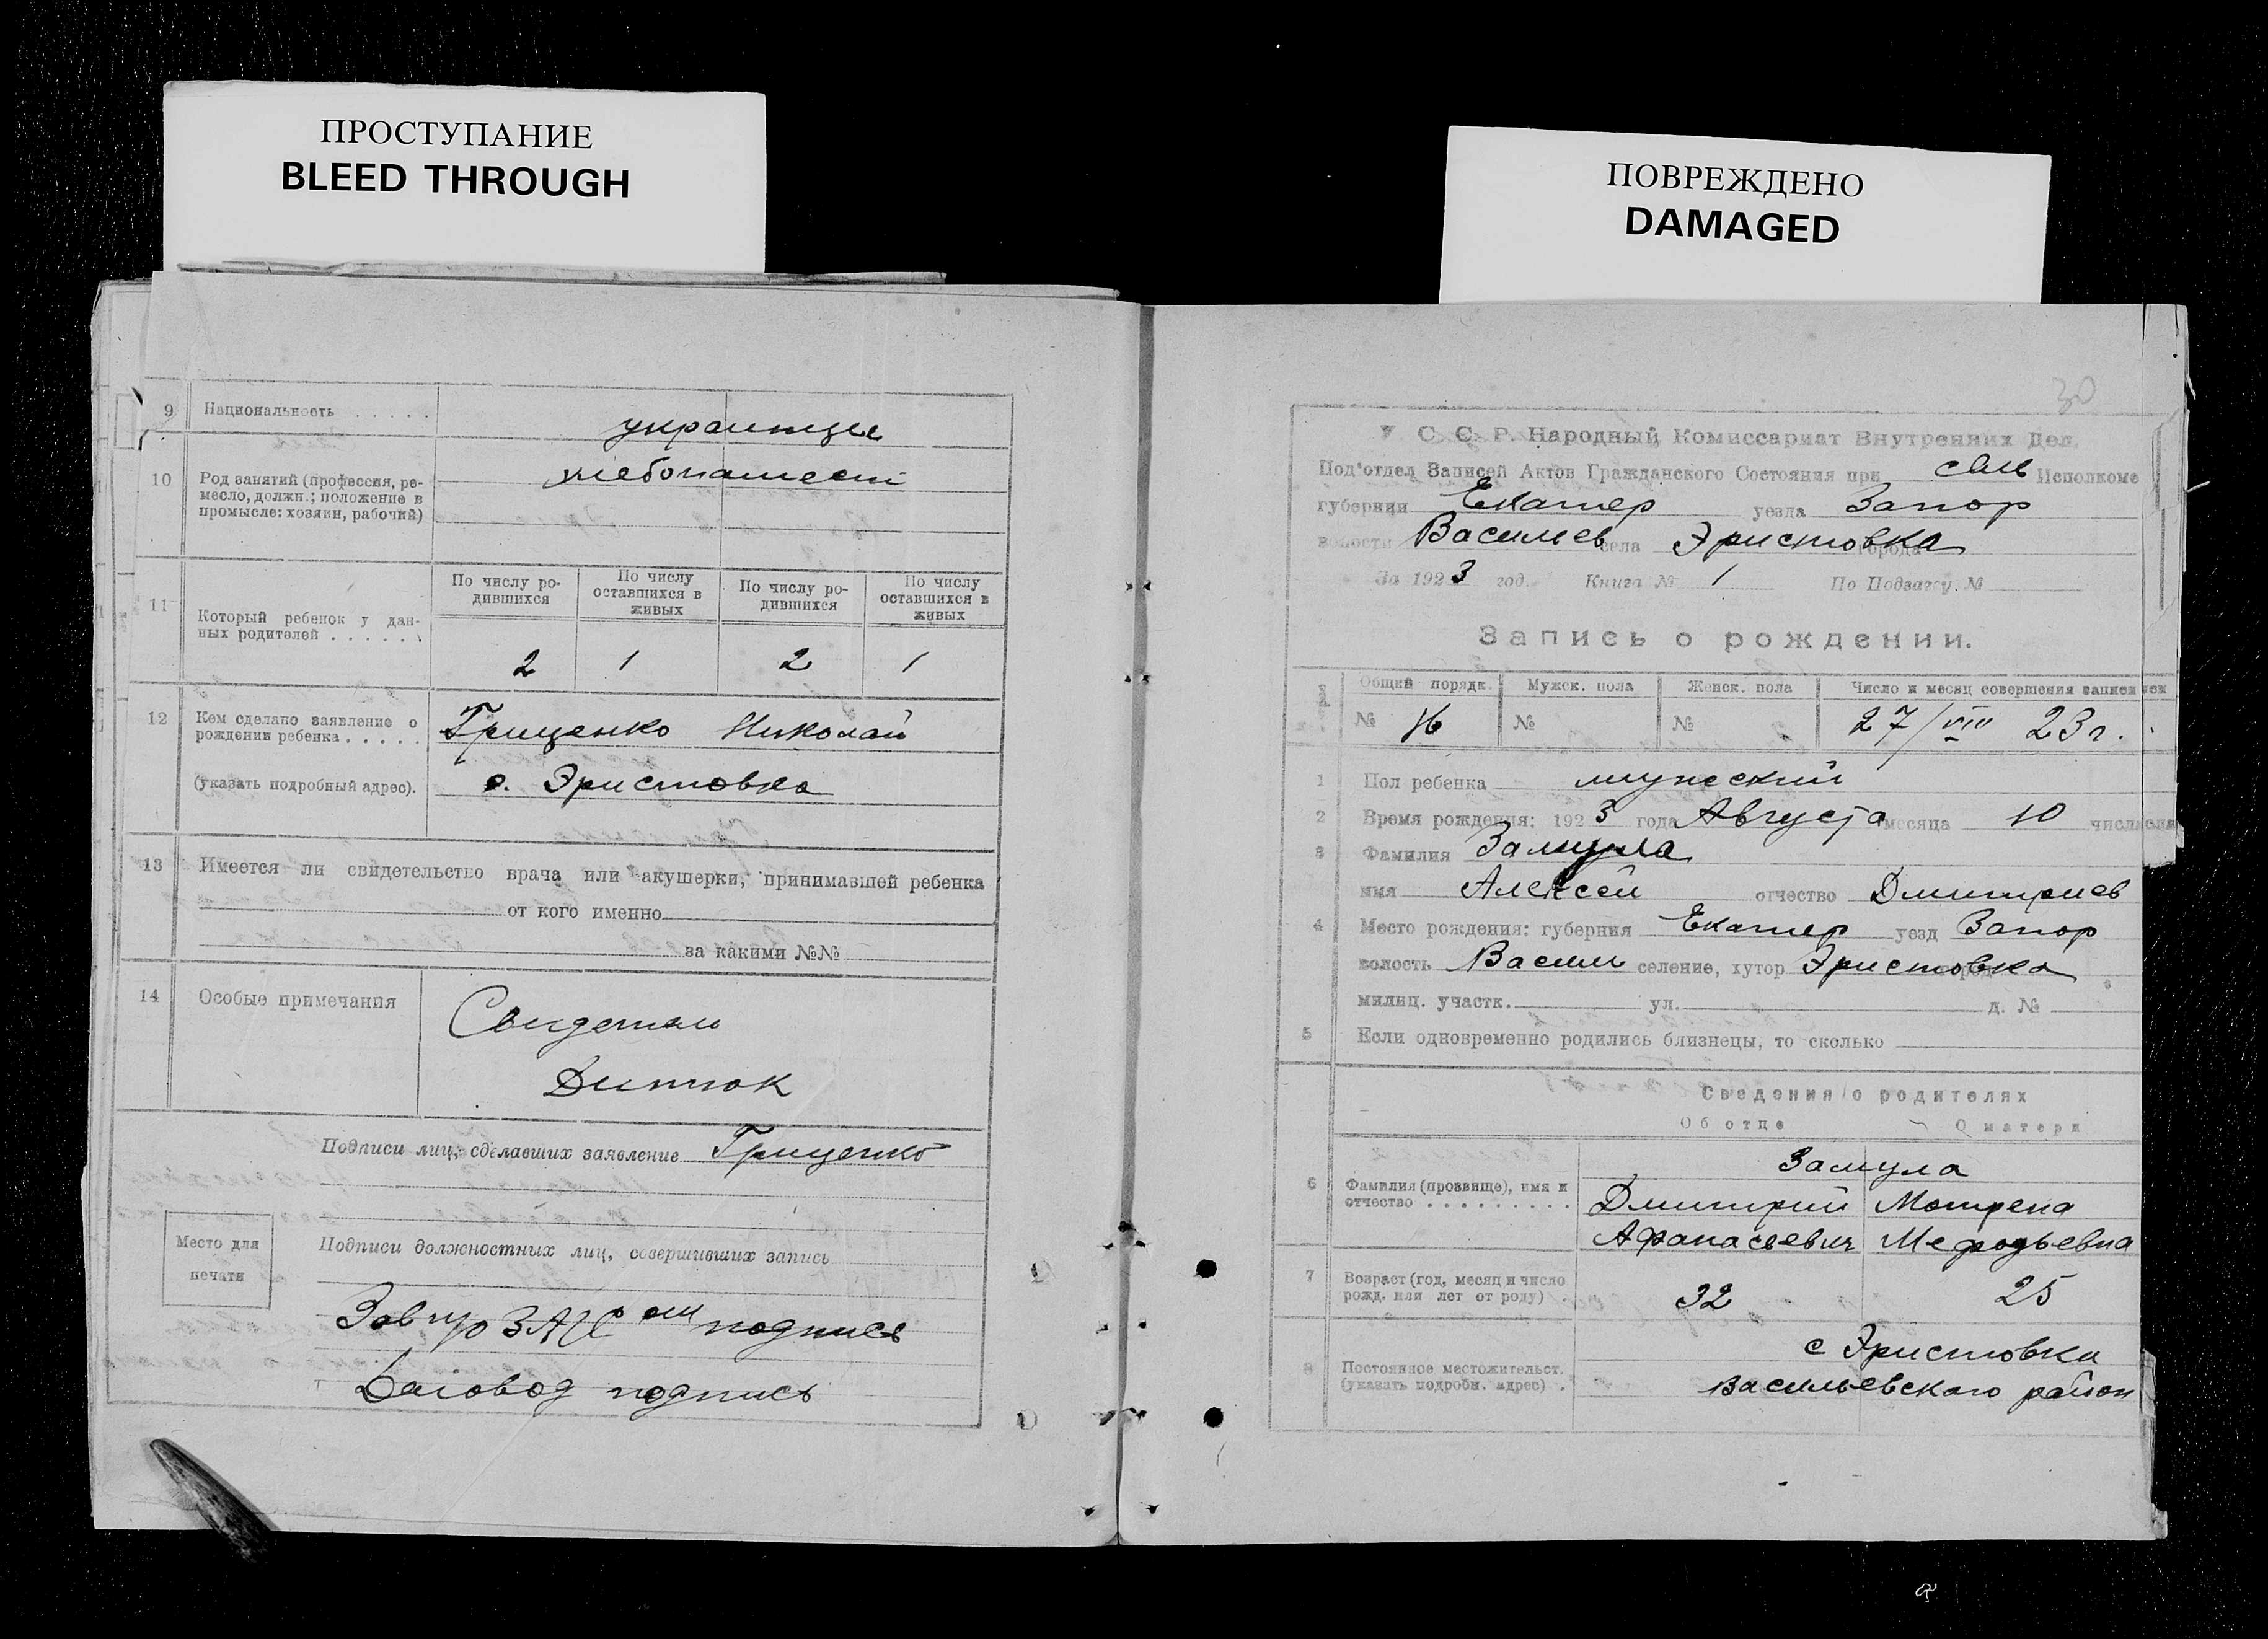 ПРОСТУПАНИЕ
BLEED THROUGH
9 Национальность . . . . .
украинцы
10 Род занятий (профессия, ре-
месло, должн.; положение в
промысле: хозяин, рабочий)
хлебопашест
11 Который ребенок у дан-
ных родителей . . . . . .
По числу ро-
дившихся
По числу
оставшихся в
живых
По числу ро-
дившихся
По числу
оставшихся в
живых
2 1 2 1
12 Кем сделано заявление о
рождении ребенка . . . . .
(указать подробный адрес).
Грищенко Николай
с. Эристовка
13 Имеется ли свидетельство врача или акушерки, принимавшей ребенка
от кого именно
за какими №№
14 Особые примечания
Свидетели
Дитюк
Подписи лиц, сделавших заявление Грищенко
Место для
печати
Подписи должностных лиц, совершивших запись
подпись
Деловод подпись
ПОВРЕЖДЕНО
DAMAGED
30
У С. С. Р. Народный Комиссариат Внутренних Дел.
Под'отдел Записей Актов Гражданского Состояния при Исполкоме
губернии Екатер уезда Запор
волости Василев села Эристовка города
За 1923 год. Книга № 1 По Подзагсу. №
Запись о рождении.
Общий порядк. Мужск. пола Женск. пола Число и месяц совершения записи
№ 16 № № 27/VIII 23 г.
1 Пол ребенка мужеский
2 Время рождения: 1923 года Августа месяца 10 числа
3 Фамилия Замула
имя Алексей отчество Дмитриев
4 Место рождения: губерния Екатер уезд Запор
волость Васил селение, хутор Эристовка
милиц. участк. ул. д. №
5 Если одновременно родились близнецы, то сколько
Сведения о родителях
Об отце О матери
6 Фамилия (прозвище), имя и
отчество . . . . . . . . .
Замула
Дмитрий Мотрена
Афанасьевич Мефодьевна
7 Возраст (год, месяц и число
рожд. или лет от роду) .
32 25
8 Постоянное местожительст.
(указать подробн. адрес) .
с Эристовка
Васильевского район